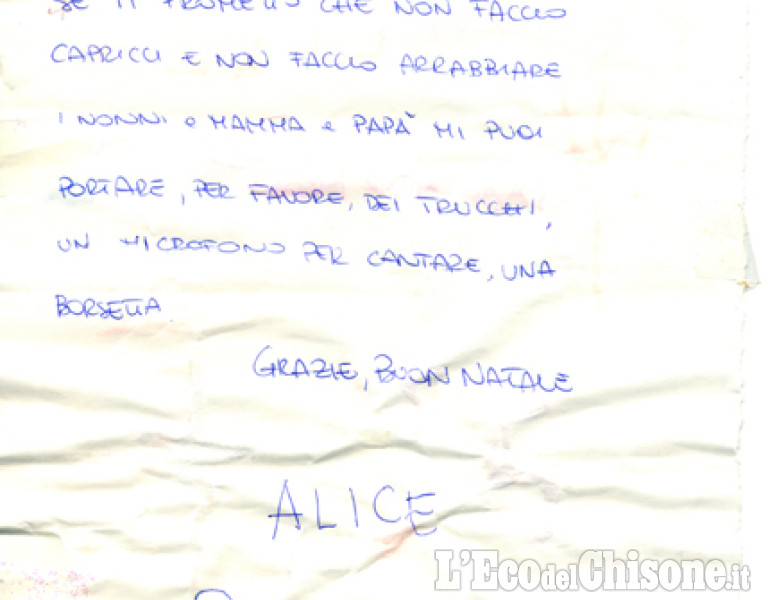 SE TI PROMETTO CHE NON FACCIO
CAPRICCI E NON FACCIO ARRABBIARE
I NONNI e MAMMA e PAPÀ MI PUOI
PORTARE, PER FAVORE, DEI TRUCCHI,
UN MICROFONO PER CANTARE, UNA
BORSETTA
GRAZIE, BUON NATALE
ALICE
L'EcodelChisone.it